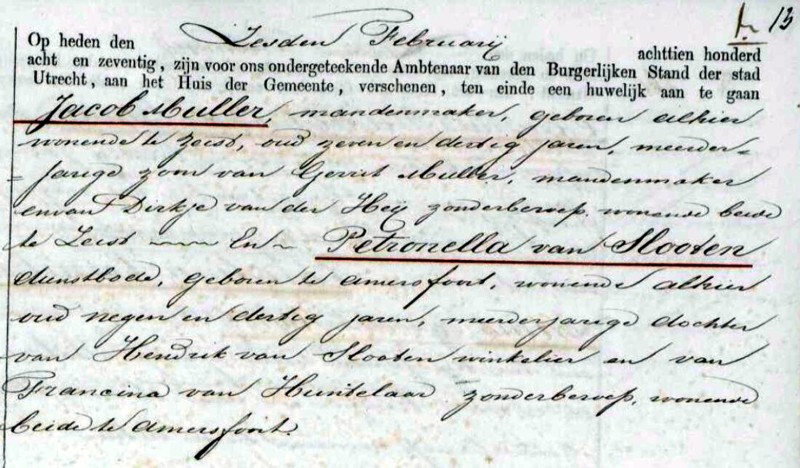 13
Op heden den Zesden Februarij achttien honderd
acht en zeventig, zijn voor ons ondergeteekende Ambtenaar van den Burgerlijken Stand der stad
Utrecht, aan het Huis der Gemeente, verschenen, ten einde een huwelijk aan te gaan
Jacob Muller, mandenmaker, geboren alhier
wonende te Zeist, oud zeven en dertig jaren, meerder=
=jarige zoon van Gerrit Muller, mandenmaker
en van Dirkje van der Heij zonder beroep, wonende beide
te Zeist En Petronella van Slooten
dienstbode, geboren te Amersfoort, wonende alhier
oud negen en dertig jaren, meerderjarige dochter
van Hendrik van Slooten winkelier en van
Francina van Huntelaar zonder beroep, wonende
beide te Amersfoort.